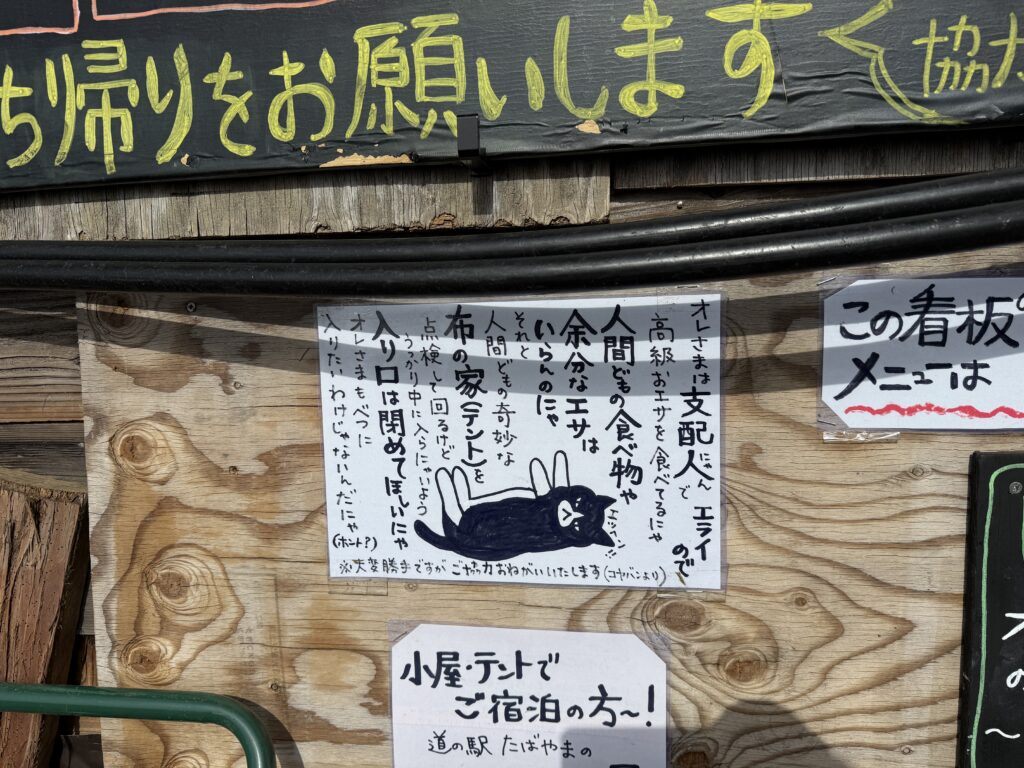 ち帰りをお願いします
協力
オレさまは支配人で エライので
にゃん
高級おエサを食べてるにゃ
人間どもの食べ物や
余分なエサは
いらんのにゃ
それと
人間どもの奇妙な
布の家(テント)を
点検して回るけど
うっかり中に入らにゃいよう
入り口は閉めてほしいにゃ
オレさまもべつに
入りたいわけじゃないんだにゃ
(ホント?)
エッヘン!!
※大変勝手ですが ご協力おねがいいたします(コヤバンより)
この看板の
メニューは
小屋・テントで
ご宿泊の方〜!
道の駅 たばやまの